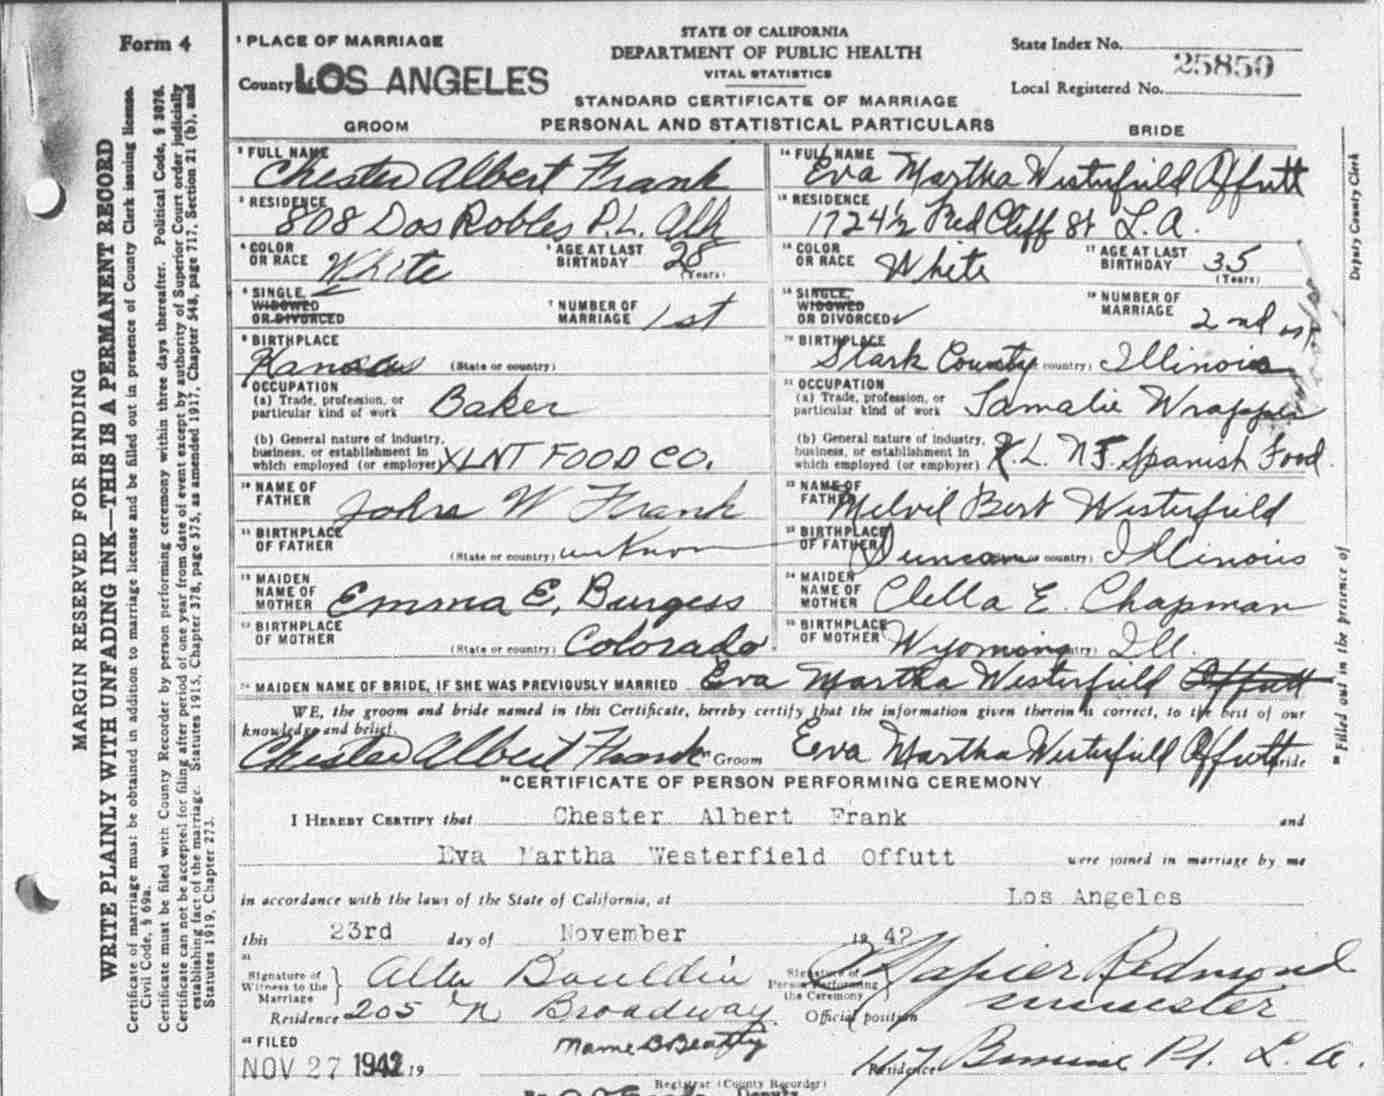 Form 4
MARGIN RESERVED FOR BINDING
WRITE PLAINLY WITH UNFADING INK—THIS IS A PERMANENT RECORD
Certificate of marriage must be obtained in addition to marriage license and be filled out in presence of County Clerk issuing license.
Civil Code, § 69a.
Certificate must be filed with County Recorder by person performing ceremony within three days thereafter. Political Code, § 3076.
Certificate can not be accepted for filing after period of one year from date of event except by authority of Superior Court order judicially
establishing fact of the marriage. Statutes 1915, Chapter 378, page 575, as amended 1917, Chapter 548, page 717, Section 21 (b), and
Statutes 1919, Chapter 273.
1 PLACE OF MARRIAGE
County LOS ANGELES
STATE OF CALIFORNIA
DEPARTMENT OF PUBLIC HEALTH
VITAL STATISTICS
STANDARD CERTIFICATE OF MARRIAGE
PERSONAL AND STATISTICAL PARTICULARS
State Index No.
25850
Local Registered No.
GROOM
BRIDE
FULL NAME Chester Albert Frank
FULL NAME Eva Martha Westerfield Offutt
RESIDENCE 808 Dos Robles P.L. Alh
RESIDENCE 1724½ Red Cliff St L.A.
COLOR OR RACE White AGE AT LAST BIRTHDAY 28 (Years)
COLOR OR RACE White AGE AT LAST BIRTHDAY 35 (Years)
SINGLE, WIDOWED OR DIVORCED NUMBER OF MARRIAGE 1st
SINGLE, WIDOWED OR DIVORCED ✓ NUMBER OF MARRIAGE 2nd
BIRTHPLACE Kansas (State or country)
BIRTHPLACE Stark County country) Illinois
OCCUPATION
(a) Trade, profession, or particular kind of work Baker
OCCUPATION
(a) Trade, profession, or particular kind of work Tamalie Wrapper
(b) General nature of industry, business, or establishment in which employed (or employer) XLNT FOOD CO.
(b) General nature of industry, business, or establishment in which employed (or employer) X.L.N.T. Spanish Food
NAME OF FATHER John W Frank
NAME OF FATHER Melvil Bert Westerfield
BIRTHPLACE OF FATHER (State or country) unknown
BIRTHPLACE OF FATHER Duncan country) Illinois
MAIDEN NAME OF MOTHER Emma E. Burgess
MAIDEN NAME OF MOTHER Clella E. Chapman
BIRTHPLACE OF MOTHER (State or country) Colorado
BIRTHPLACE OF MOTHER Wyoming Ill.
MAIDEN NAME OF BRIDE, IF SHE WAS PREVIOUSLY MARRIED Eva Martha Westerfield Offutt
WE, the groom and bride named in this Certificate, hereby certify that the information given therein is correct, to the best of our
knowledge and belief.
Chester Albert Frank Groom Eva Martha Westerfield Offutt Bride
CERTIFICATE OF PERSON PERFORMING CEREMONY
I HEREBY CERTIFY that Chester Albert Frank and
Eva Martha Westerfield Offutt were joined in marriage by me
in accordance with the laws of the State of California, at Los Angeles
this 23rd day of November 19 42
Signature of Witness to the Marriage Alta Bouldin
Signature of Person Performing the Ceremony Napier Redmond
Residence 205 N Broadway
Official position minister
FILED
NOV 27 1942 19
Mame B Beatty
Registrar (County Recorder)
Residence Pl. L.A.
Deputy
Deputy County Clerk
Filled out in the presence of